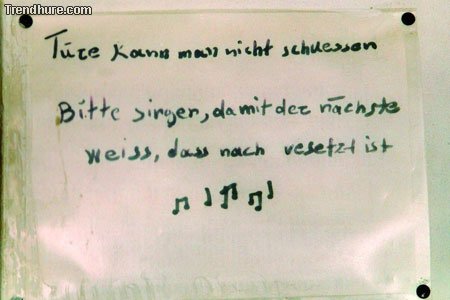 Trendhure.com
Türe kann man nicht schuessen
Bitte singen, damit der nächste
weiss, dass noch vesetzt ist